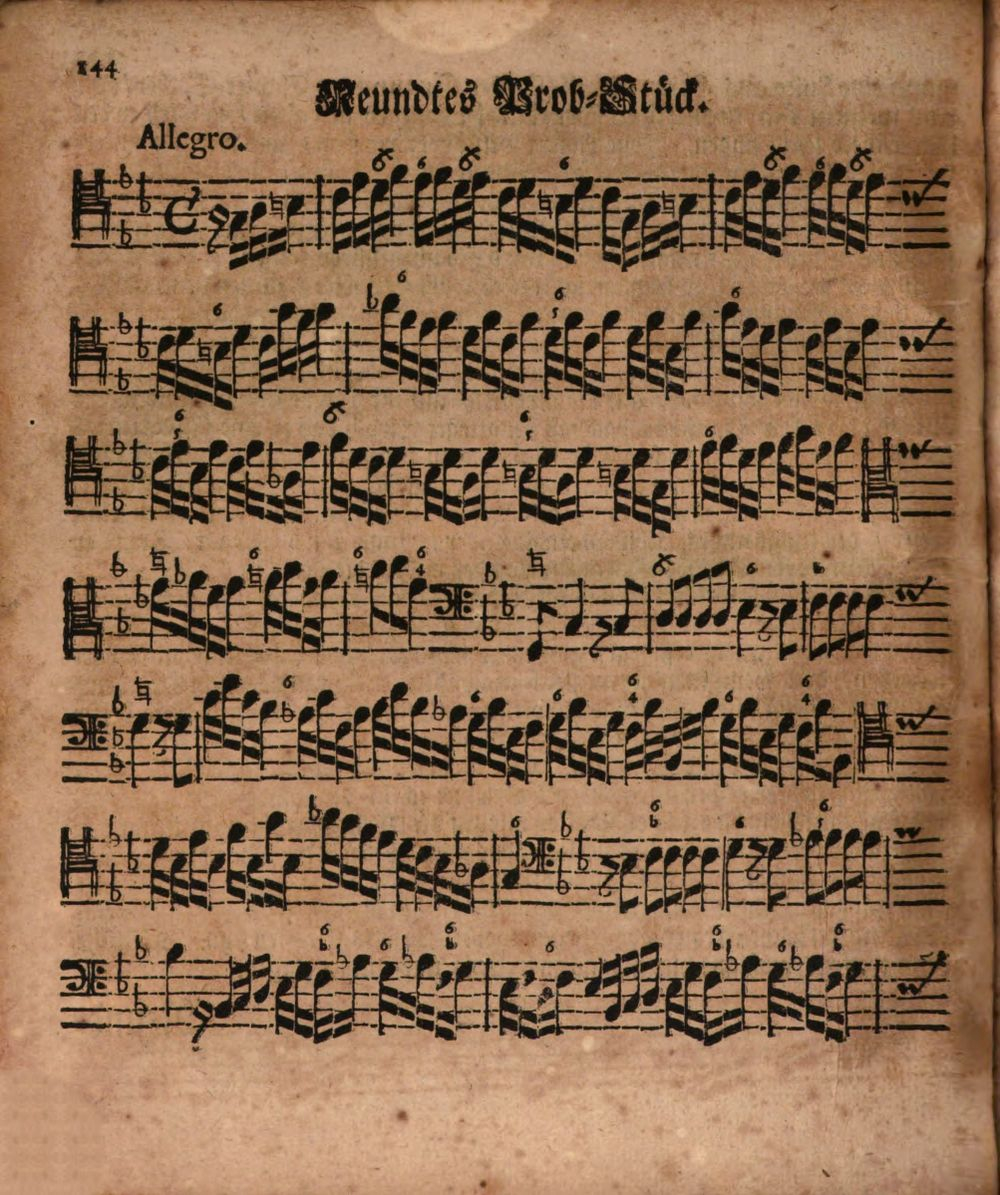 144
Neundtes Prob-Stück.
Allegro.